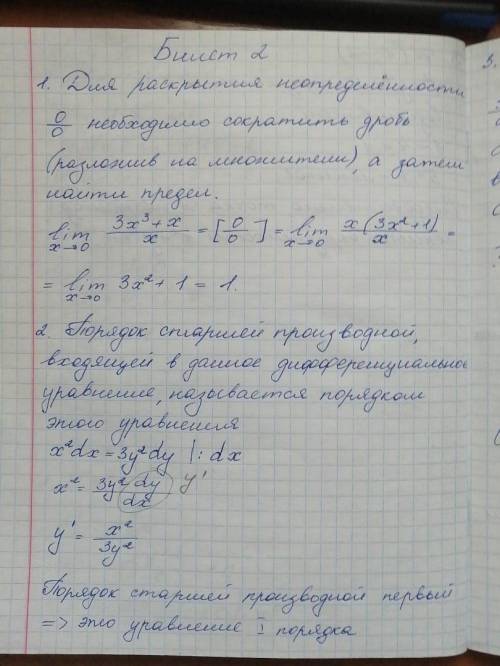 Билет 2
1. Для раскрытия неопределённости
0/0 необходимо сократить дробь
(разложив на множители), а затем
найти предел.
lim x→0 (3x³+x)/x = [0/0] = lim x→0 x(3x²+1)/x =
= lim x→0 3x²+1 = 1.
2. Порядок старшей производной,
входящей в данное дифференциальное
уравнение, называется порядком
этого уравнения
x²dx = 3y²dy |: dx
x² = 3y² dy/dx y'
y' = x²/3y²
Порядок старшей производной первый
=> это уравнение I порядка
3.